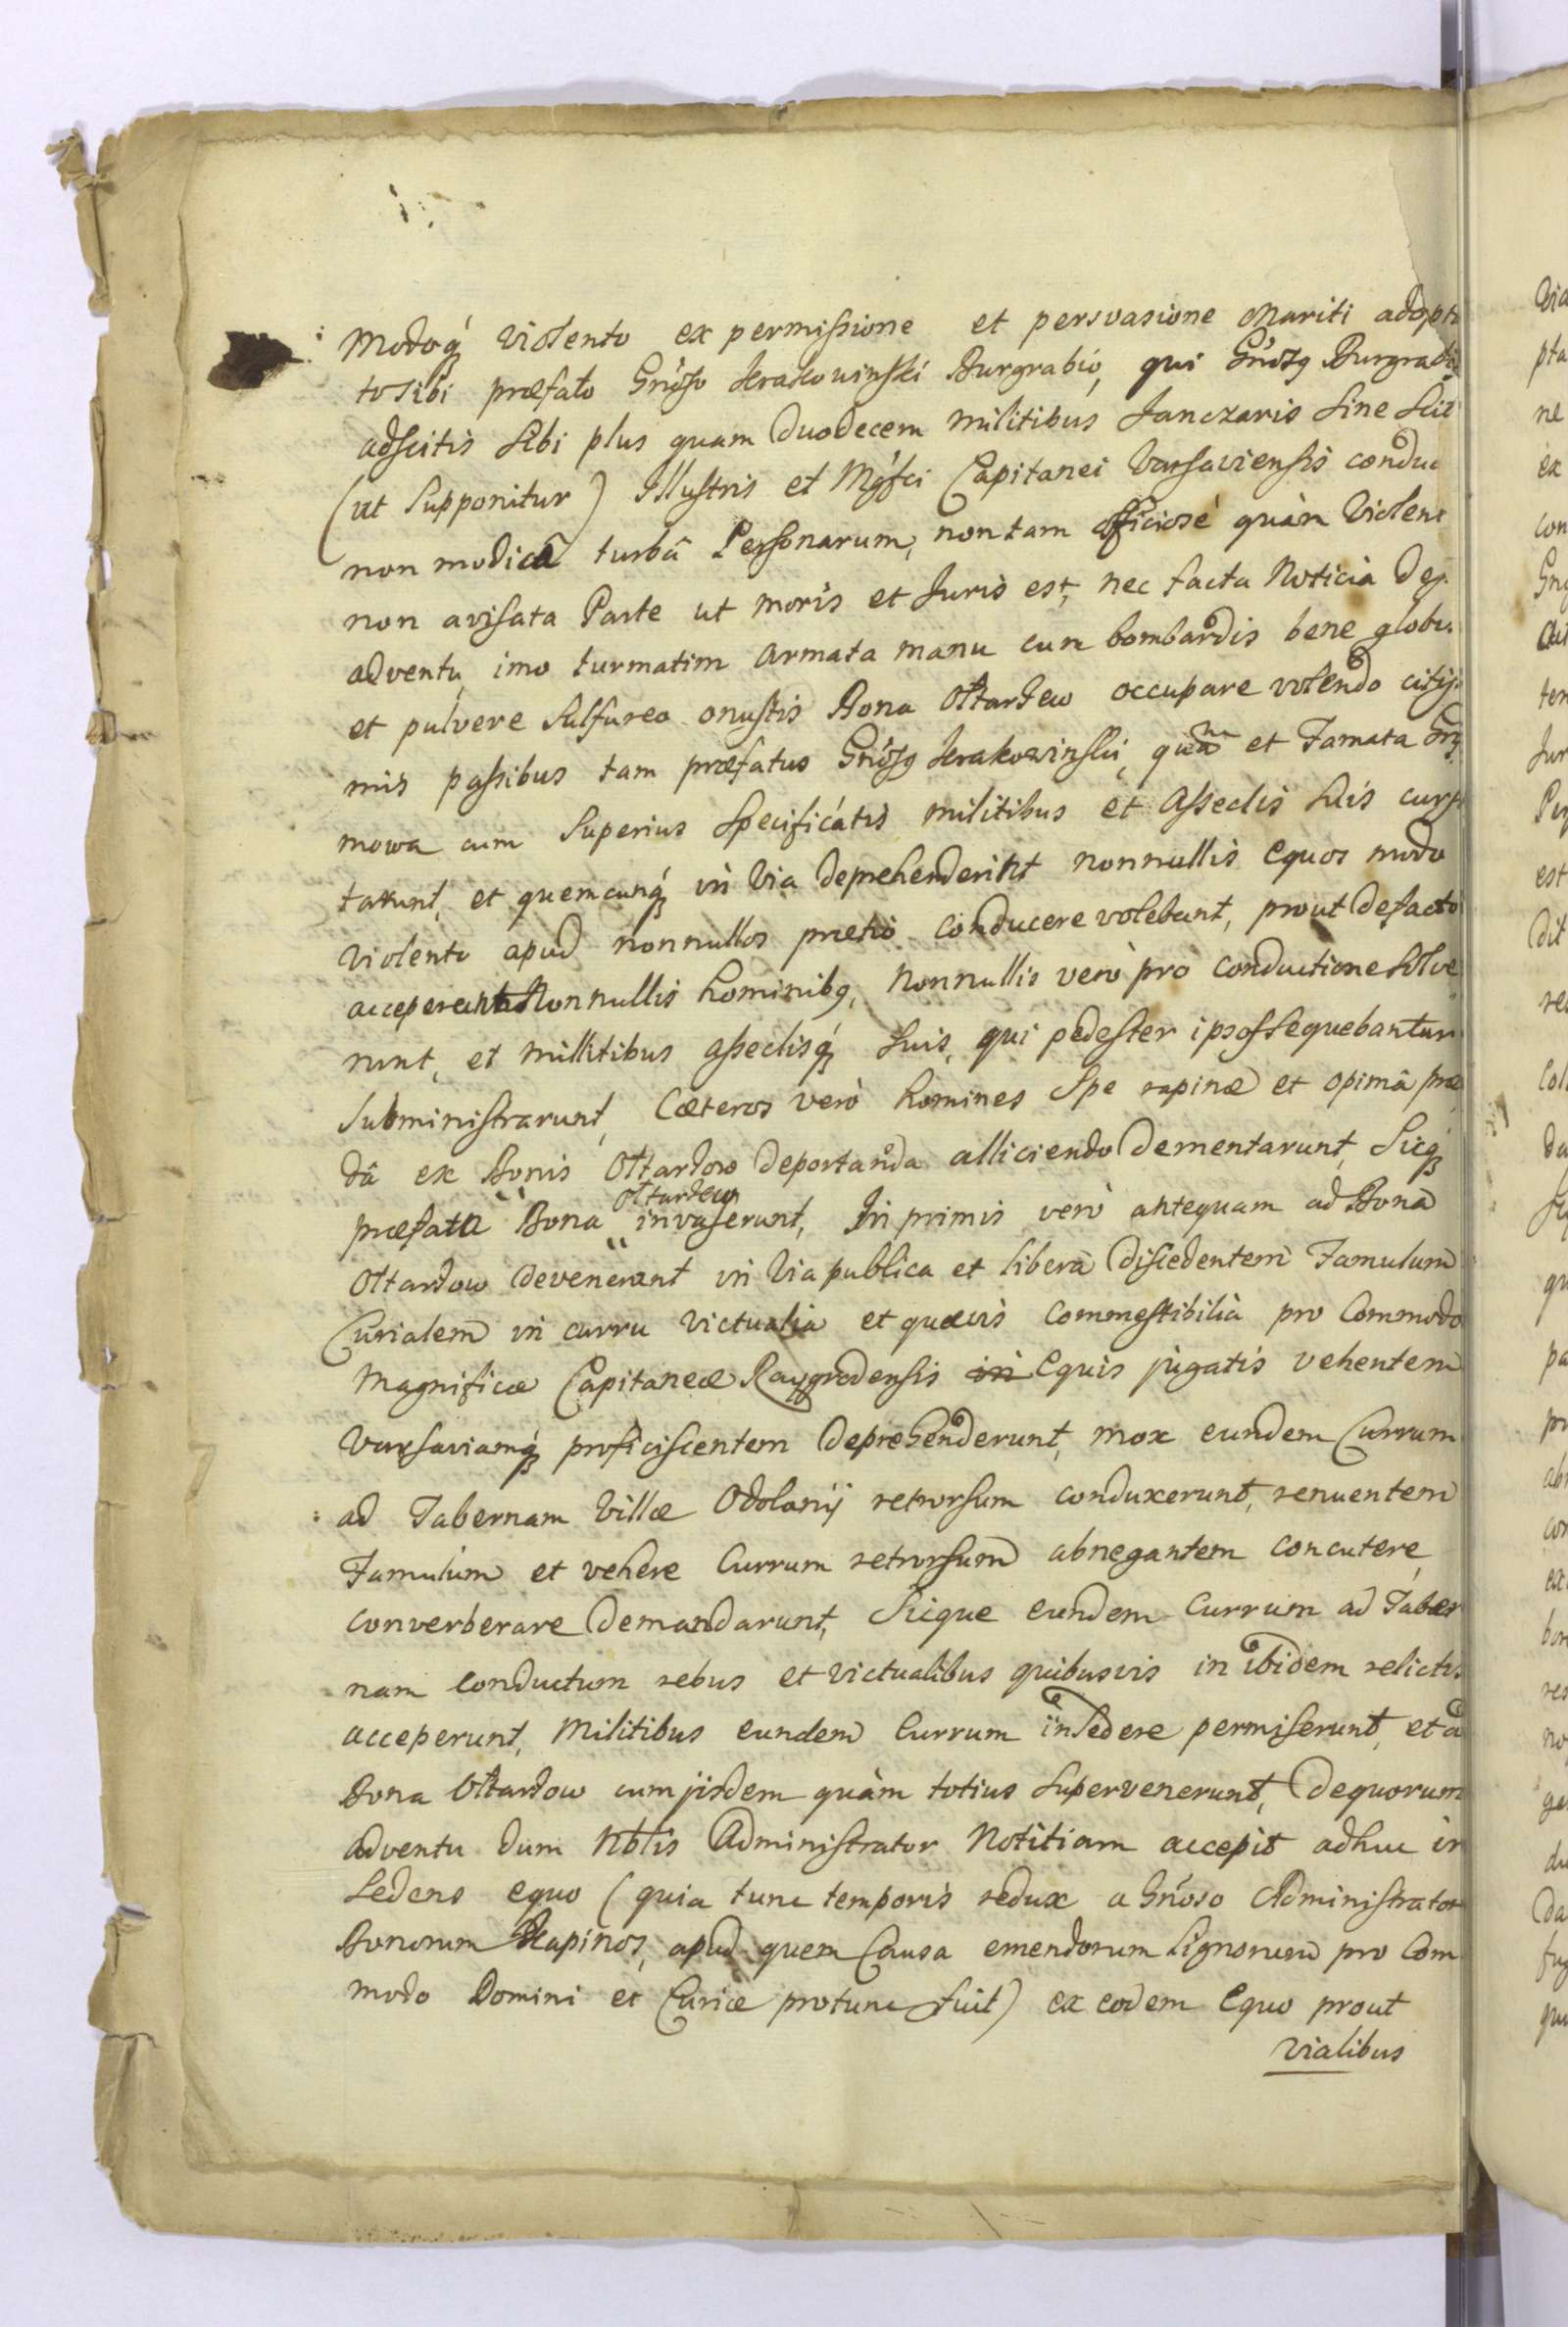 Modoq́ violento ex permissione et persvasione Mariti adopta
to sibi præfato Gnoso Krakowinski Burgrabio, qui Gnosg Burgrabi
adscitis sibi plus quam duodecem militibus Janczaris sine Sci
(ut supponitur) Illustris et Mgfci Capitanei Varsaviensis condu
non modicâ turbâ Personarum, non tam officiosè quàm violen
non avisata Parte ut moris et Juris est, nec facta Noticia de
adventu imo turmatim armata manu cum bombardis bene glob
et pulvere Sulfureo onustis Bona Ottardew occupare volendo citis
mis passibus tam præfatus Gnosg Krakowinski, quam et Famata
mowa cum Superius Specificátis militibus et Asseclis Suis curs
tarunt, et quemcunq́ in via deprehenderint nonnullis equos modo
violento apud nonnullos pretio conducere volebant, prout defacto
acceperunt Nonnullis hominibg, Nonnullis verò pro conductione Solve
runt, et millitibus asseclisq́ Suis, qui pedester ipsos Sequebantur
Subministrarunt, Cæteros verò homines Spe rapinæ et opimâ præ
dâ ex Bonis Ottardow deportanda alliciendo dementarunt, Sicq
præfata Bona Ottardew invaserunt, In primis verò antequam ad Bona
Ottardow devenerant in via publica et liberâ discedentem Famulum
Curialem in curru victualia et quævis commestibilia pro Commodo
Magnificæ Capitaneæ Raygrodensis in Equis jugatis vehentem
Varsaviamq́ proficiscentem deprehenderunt, mox eundem Currum
ad Tabernam Villæ Odolany retrorsum conduxerunt, renuentem
Famulum et vehere Currum retrorsum abnegantem concutere,
converberare demandarunt, Sicque eundem Currum ad Taber
nam conductum rebus et victualibus quibusvis in ibidem relictis
acceperunt, Militibus eundem Currum insedere permiserunt, et a
Bona Ottardow cum jisdem quàm totius supervenerunt, De quorum
adventu dum Nblis Administrator Notitiam accepit adhuc in
Sedens equo (quia tunc temporis redux a Gnoso Administrator
Bonorum Kapinos, apud quem Causa emendorum Lignorum pro Com
modo Domini et Curiæ protunc fuit) ex eodem Equo prout
vialibus